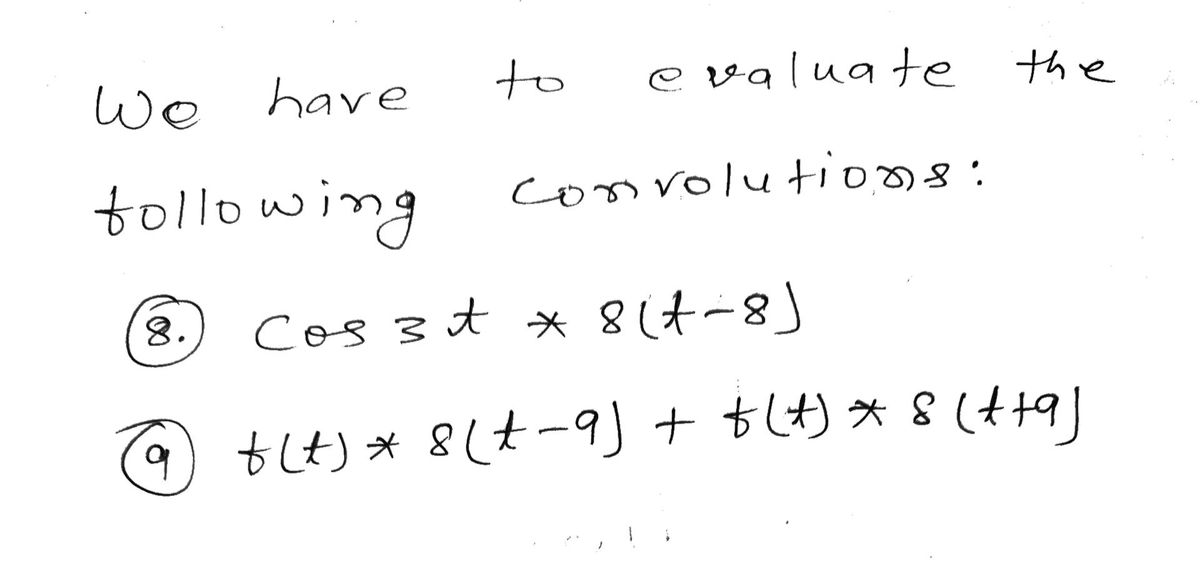 We have to evaluate the
following convolutions:
8. Cos 3t * δ(t-8)
9 f(t) * δ(t-9) + f(t) * δ(t+9)